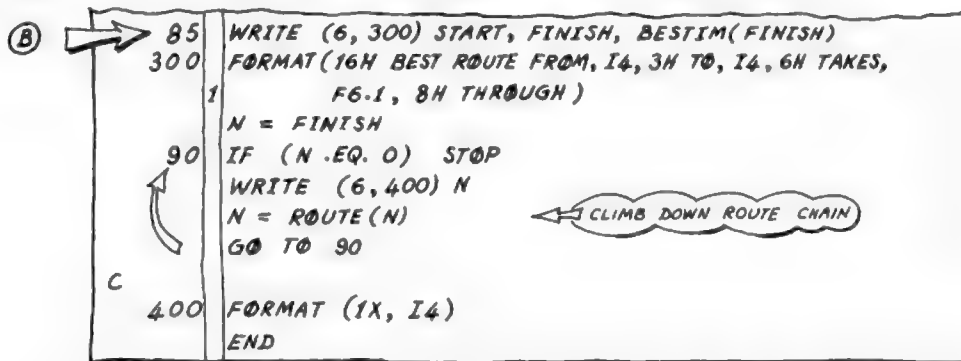 B 85 WRITE (6, 300) START, FINISH, BESTIM(FINISH)
300 FØRMAT(16H BEST RØUTE FRØM, I4, 3H TØ, I4, 6H TAKES,
1 F6.1, 8H THRØUGH)
N = FINISH
90 IF (N .EQ. O) STØP
WRITE (6,400) N
N = RØUTE(N) CLIMB DØWN RØUTE CHAIN
GØ TØ 90
C
400 FØRMAT (1X, I4)
END